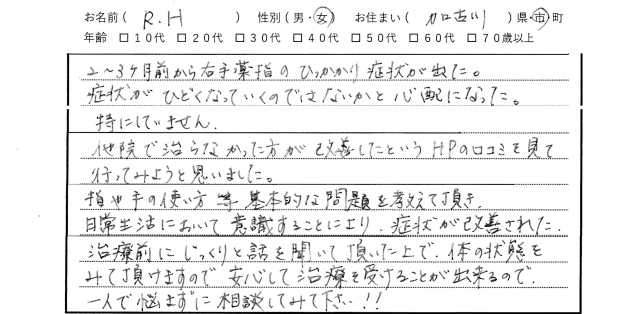 お名前( R.H ) 性別(男・女) お住まい( 加古川 )県・市・町
年齢 □10代 □20代 □30代 □40代 □50代 □60代 □70歳以上
2〜3ヶ月前から右手薬指のひっかかり症状が出た。
症状がひどくなっていくのではないかと心配になった。
特にしていません.
他院で治らなかった方が改善したというHPの口コミを見て
行ってみようと思いました。
指や手の使い方 等 基本的な問題を考えて頂き、
日常生活において意識することにより、症状が改善された.
治療前にじっくりと話を聞いて頂いた上で、体の状態を
みて頂けますので、安心して治療を受けることが出来るので、
一人で悩まずに相談してみて下さい!!